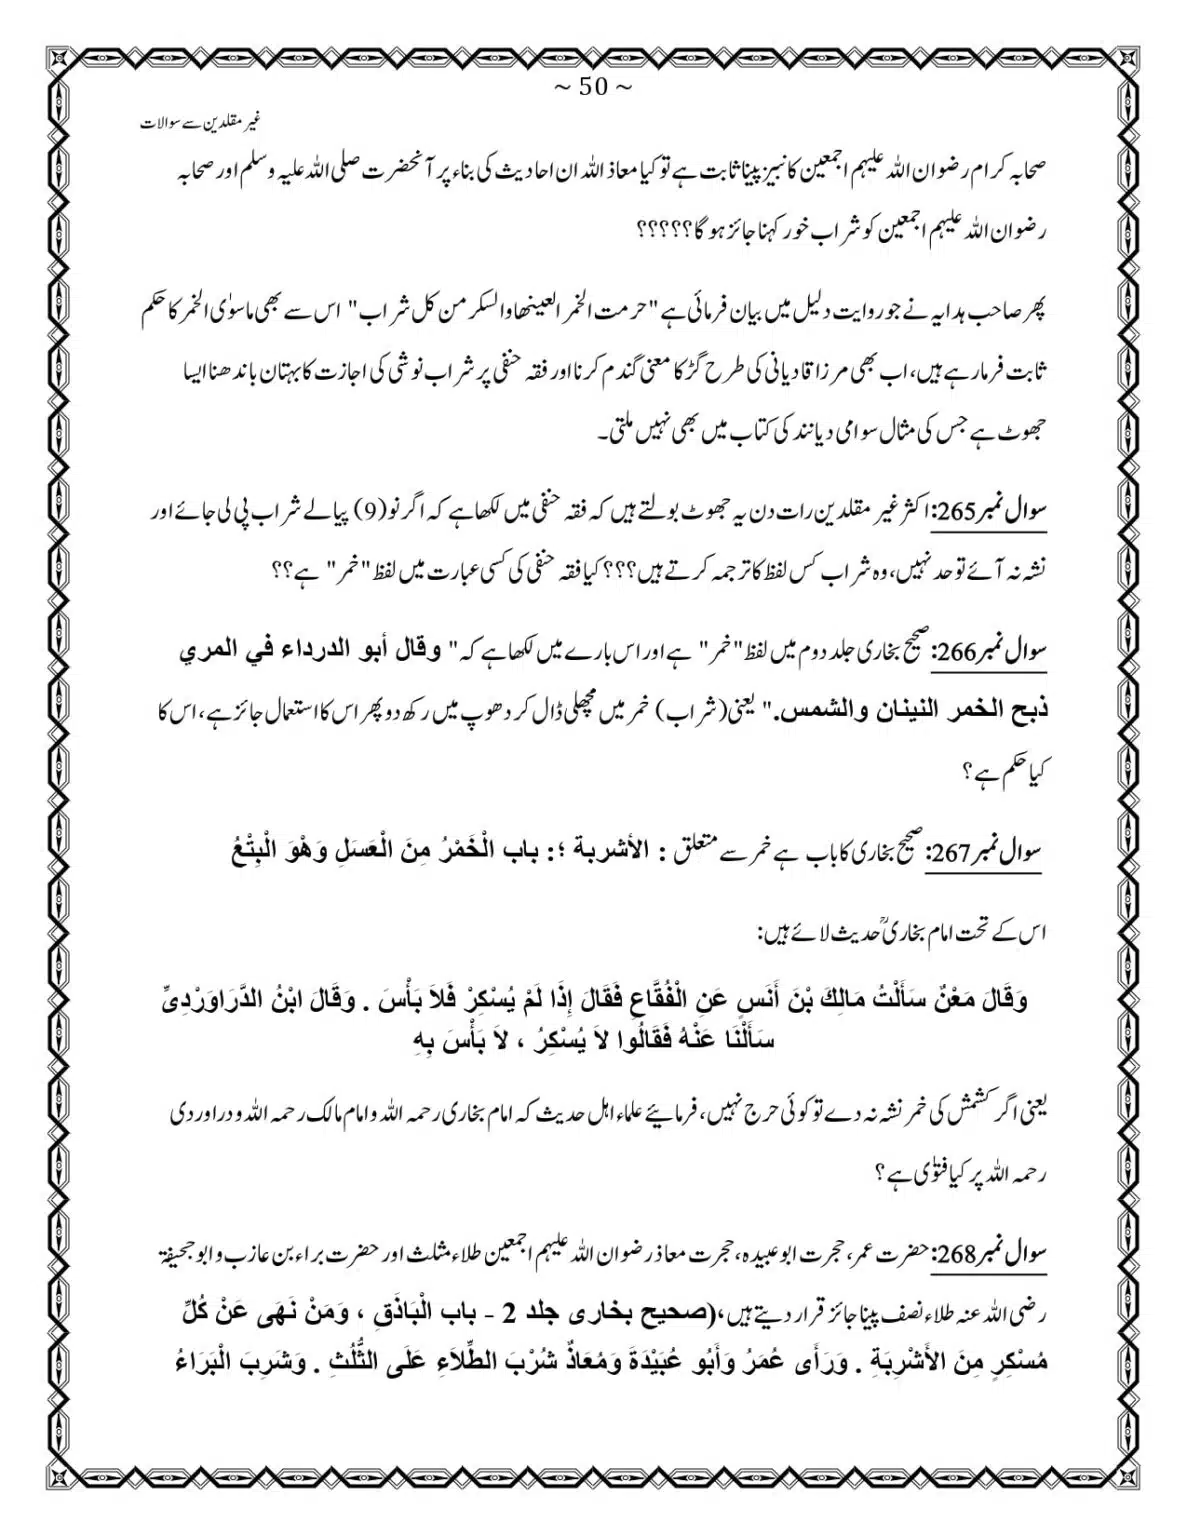 ~ 50 ~
غیر مقلدین سے سوالات
صحابہ کرام رضوان اللہ علیہم اجمعین کا نبیز پینا ثابت ہے تو کیا معاذ اللہ ان احادیث کی بناء پر آنحضرت صلی اللہ علیہ وسلم اور صحابہ
رضوان اللہ علیہم اجمعین کو شراب خور کہنا جائز ہو گا؟؟؟؟؟
پھر صاحب ہدایہ نے جو روایت دلیل میں بیان فرمائی ہے "حرمت الخمر العینھا والسکر من کل شراب" اس سے بھی ماسوٰی الخمر کا حکم
ثابت فرمارہے ہیں، اب بھی مرزا قادیانی کی طرح گڑ کا معنی گندم کرنا اور فقہ حنفی پر شراب نوشی کی اجازت کا بہتان باندھنا ایسا
جھوٹ ہے جس کی مثال سوامی دیانند کی کتاب میں بھی نہیں ملتی۔
سوال نمبر 265: اکثر غیر مقلدین رات دن یہ جھوٹ بولتے ہیں کہ فقہ حنفی میں لکھا ہے کہ اگر نو(9) پیالے شراب پی لی جائے اور
نشہ نہ آئے تو حد نہیں، وہ شراب کس لفظ کا ترجمہ کرتے ہیں؟؟؟ کیا فقہ حنفی کی کسی عبارت میں لفظ "خمر" ہے؟؟
سوال نمبر 266: صحیح بخاری جلد دوم میں لفظ "خمر" ہے اور اس بارے میں لکھا ہے کہ" وقال أبو الدرداء في المري
ذبح الخمر النينان والشمس." یعنی (شراب) خمر میں مچھلی ڈال کر دھوپ میں رکھ دو پھر اس کا استعمال جائز ہے، اس کا
کیا حکم ہے؟
سوال نمبر 267: صحیح بخاری کا باب ہے خمر سے متعلق : الأشربة ؛: باب الْخَمْرُ مِنَ الْعَسَلِ وَهْوَ الْبِتْعُ
اس کے تحت امام بخاریؒ حدیث لائے ہیں:
وَقَالَ مَعْنٌ سَأَلْتُ مَالِكَ بْنَ أَنَسٍ عَنِ الْفُقَّاعِ فَقَالَ إِذَا لَمْ يُسْكِرْ فَلاَ بَأْسَ . وَقَالَ ابْنُ الدَّرَاوَرْدِىِّ
سَأَلْنَا عَنْهُ فَقَالُوا لاَ يُسْكِرُ ، لاَ بَأْسَ بِهِ
یعنی اگر کشمش کی خمر نشہ نہ دے تو کوئی حرج نہیں، فرمایئے علماء اہل حدیث کہ امام بخاری رحمہ اللہ و امام مالک رحمہ اللہ و دراوردی
رحمہ اللہ پر کیا فتوٰی ہے؟
سوال نمبر 268: حضرت عمر، حجرت ابو عبیدہ، حجرت معاذ رضوان اللہ علیہم اجمعین طلاء مثلث اور حضرت براء بن عازب و ابو جحیفۃ
رضی اللہ عنہ طلاء نصف پینا جائز قرار دیتے ہیں، (صحيح بخارى جلد 2 - باب الْبَاذَقِ ، وَمَنْ نَهَى عَنْ كُلِّ
مُسْكِرٍ مِنَ الأَشْرِبَةِ . وَرَأَى عُمَرُ وَأَبُو عُبَيْدَةَ وَمُعَاذٌ شُرْبَ الطِّلاَءِ عَلَى الثُّلُثِ . وَشَرِبَ الْبَرَاءُ